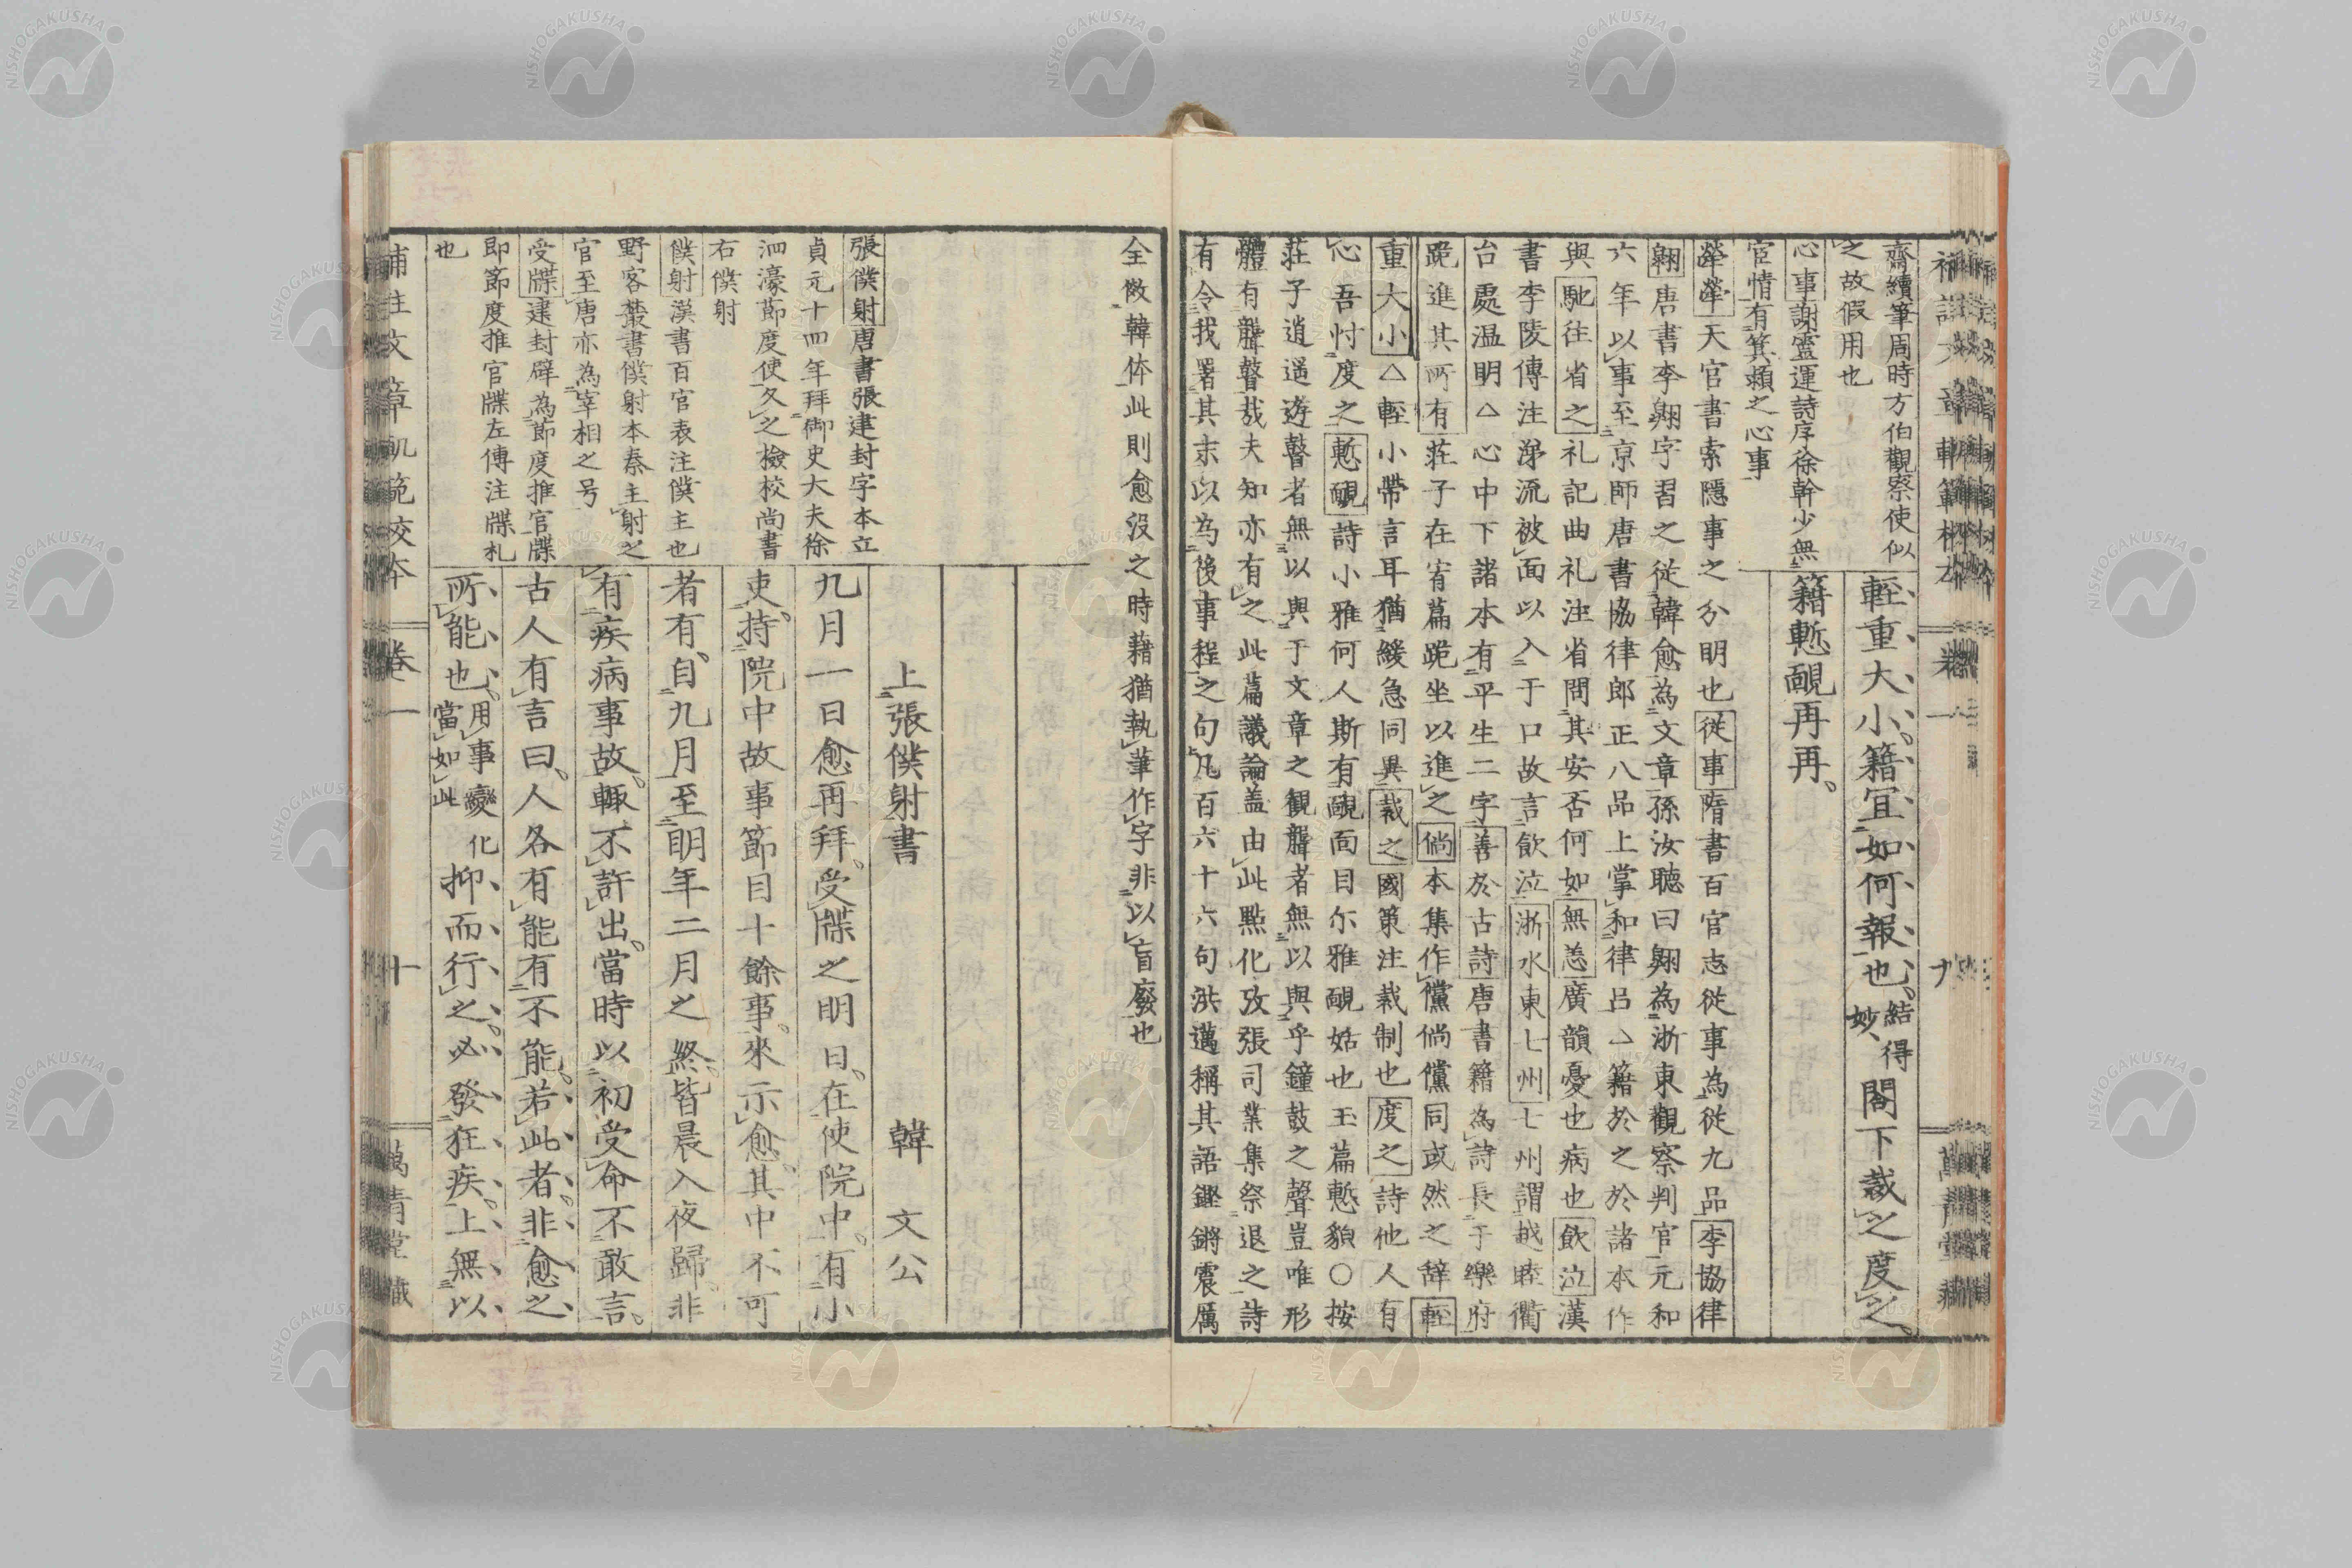 齋續筆周時方伯觀察使似
之故假用也
心事謝靈運詩序徐幹少無
宦情有箕潁之心事
輕重大小籍宜如何報也結得妙閣下裁之度之
籍慙靦再再
犖犖天官書索隱事之分明也從事隋書百官志從事為從九品李協律
翺唐書李翺字習之從韓愈為文章孫汝聽曰翺為浙東觀察判官元和
六年以事至京師唐書協律郎正八品上掌和律呂△籍於之於諸本作
與馳往省之礼記曲礼注省問其安否何如無恙廣韻憂也病也飲泣漢
書李陵傳注涕流被面以入于口故言飲泣浙水東七州七州謂越睦衢
台處温明△心中下諸本有平生二字善於古詩唐書籍為詩長于樂府
跪進其所有莊子在宥篇跪坐以進之倘本集作儻倘儻同或然之辞輕
重大小△輕小帶言耳猶緩急同異裁之國策注裁制也度之詩他人有
心吾忖度之慙靦詩小雅何人斯有靦面目尓雅靦姡也玉篇慙貌○按
莊子逍遥遊瞽者無以與于文章之観聾者無以與乎鐘鼓之聲豈唯形
體有聾瞽哉夫知亦有之此篇議論盖由此點化攷張司業集祭退之詩
有令我署其末以為後事程之句凡百六十六句洪邁稱其語鏗鏘震厲
全倣韓体此則愈没之時藉猶執筆作字非以盲廢也
張僕射唐書張建封字本立
貞元十四年拜御史大夫徐
泗濠節度使久之檢校尚書
右僕射
僕射漢書百官表注僕主也
野客叢書僕射本秦主射之
官至唐亦為宰相之号
受牒建封辟為節度推官牒
即節度推官牒左傳注牒札
也
上張僕射書　韓文公
九月一日愈再拜受牒之明日在使院中有小
吏持院中故事節目十餘事來示愈其中不可
者有自九月至明年二月之終皆晨入夜歸非
有疾病事故輒不許出當時以初受命不敢言
古人有言曰人各有能有不能若此者非愈之
所能也用事變化當如此抑而行之必發狂疾上無以
補註文章軌範校本　卷一　十　萬青堂藏